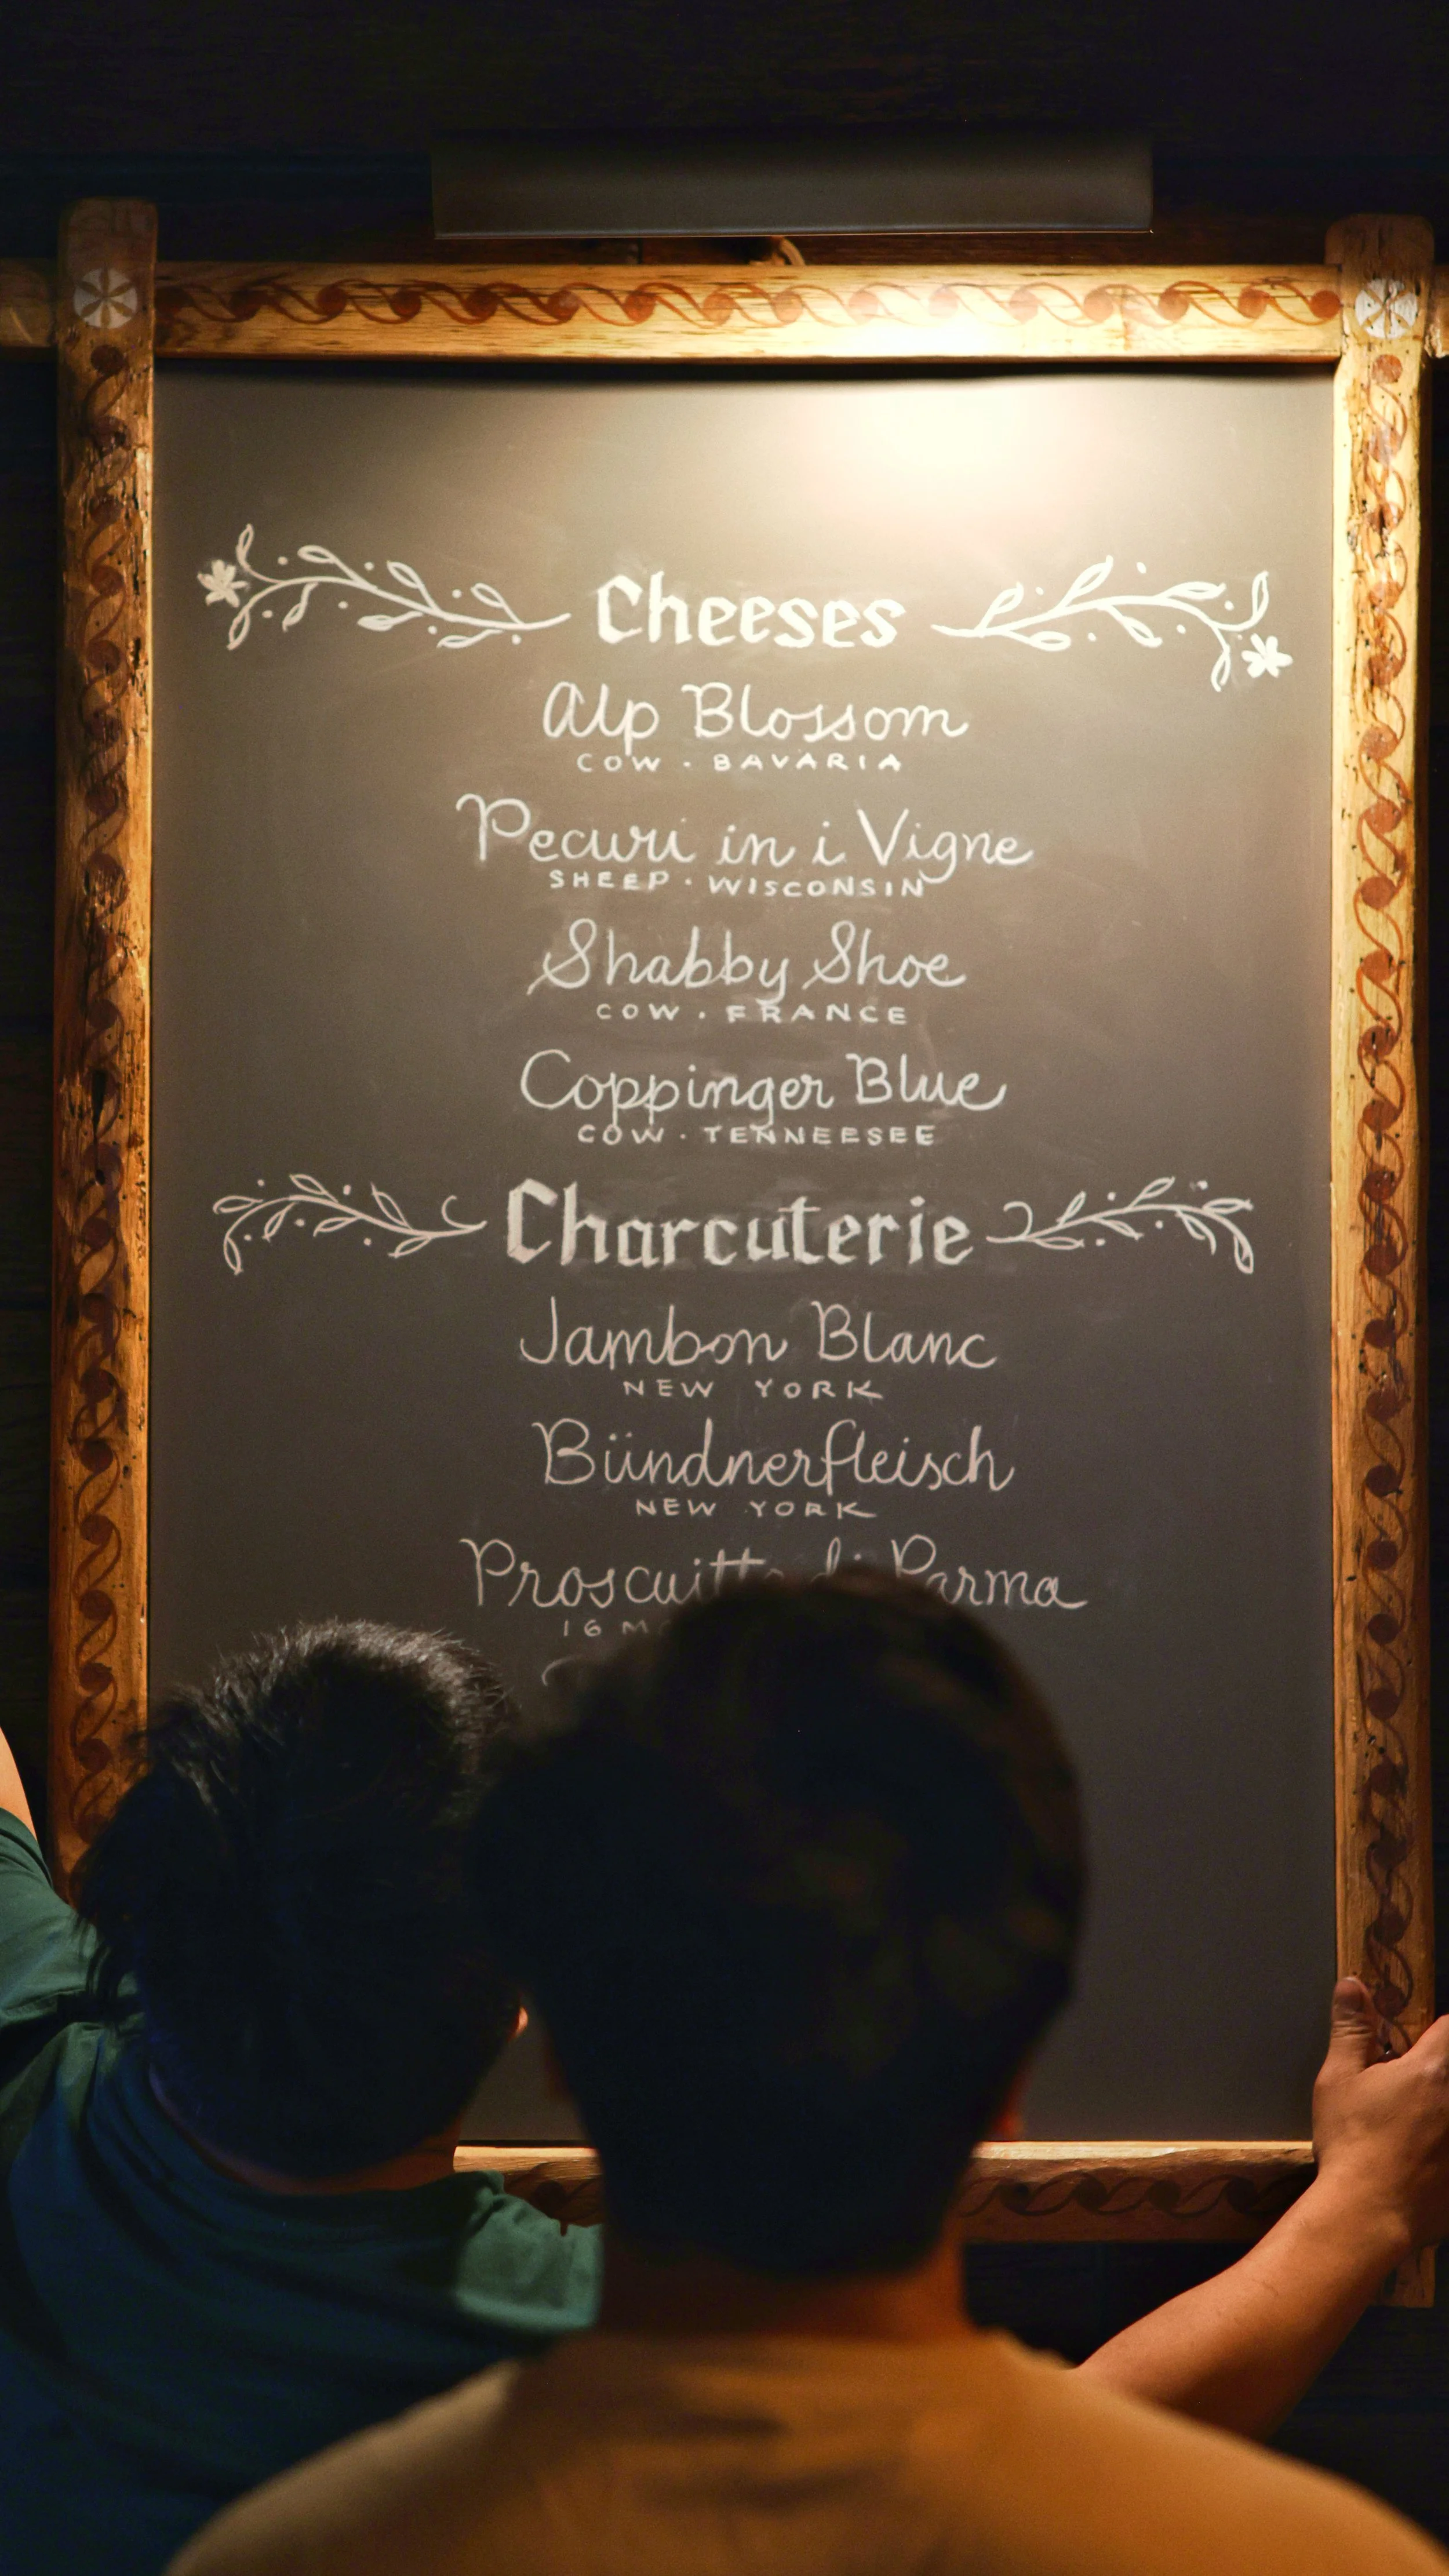 Cheeses
Alp Blossom
COW · BAVARIA
Pecuri in i Vigne
SHEEP · WISCONSIN
Shabby Shoe
COW · FRANCE
Coppinger Blue
COW · TENNEESEE
Charcuterie
Jambon Blanc
NEW YORK
Bündnerfleisch
NEW YORK
Proscuitto di Parma
16